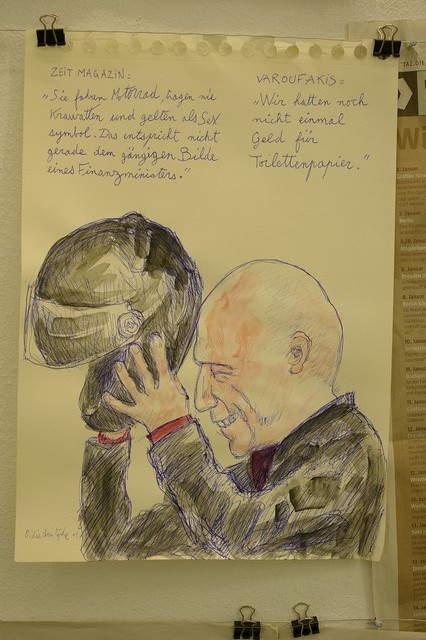 ZEIT MAGAZIN:
„Sie fahren Motorrad, tragen nie
Krawatten und gelten als Sex
symbol. Das entspricht nicht
gerade dem gängigen Bilde
eines Finanzministers."
VAROUFAKIS:
„Wir hatten noch
nicht einmal
Geld für
Toilettenpapier."